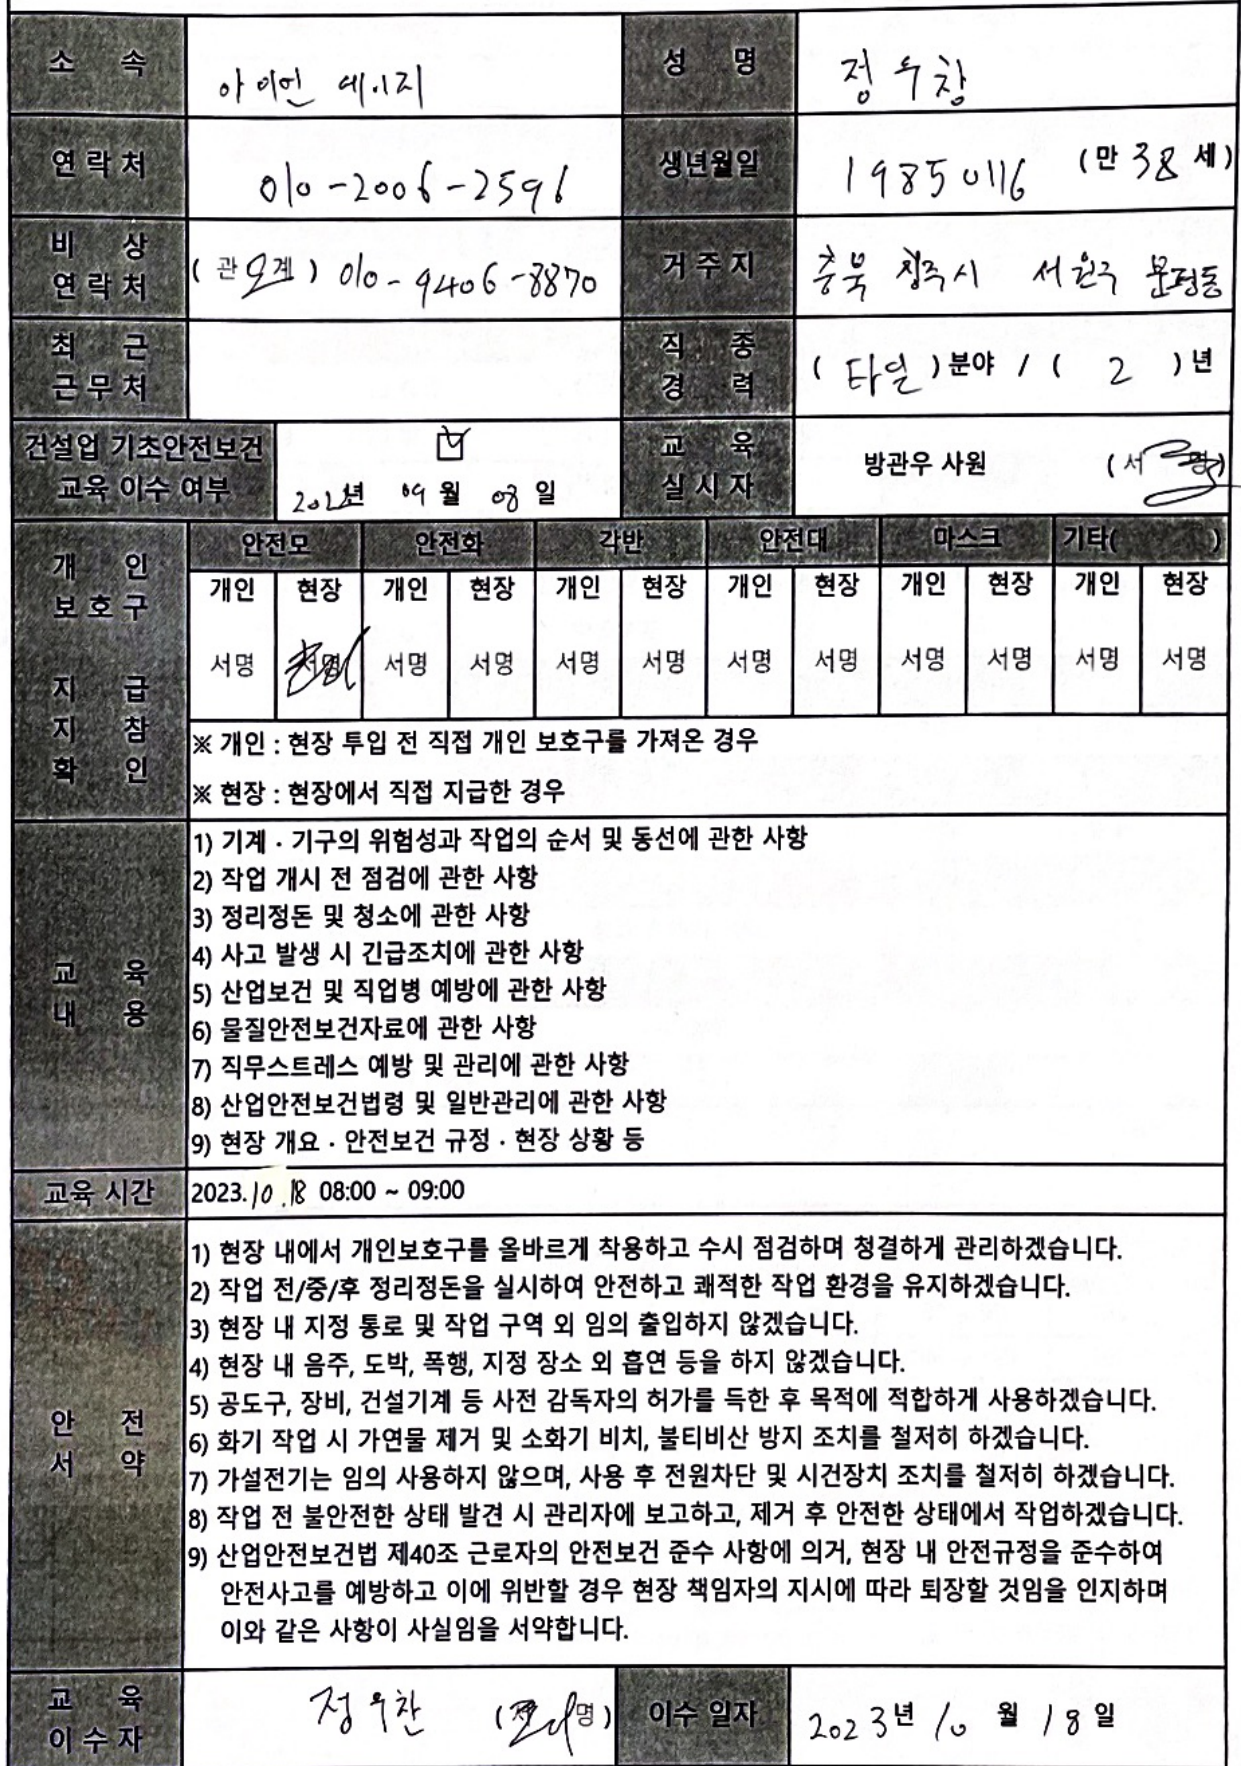 소 속
아이언 에이지
성 명
정우창
연락처
010-2006-2596
생년월일
19850116 (만 38 세)
비 상
연락처
(관 모계) 010-9406-8870
거주지
충북 청주시 서원구
최 근
근무처
직 종
경 력
(타일)분야 / ( 2 )년
건설업 기초안전보건
교육 이수 여부
년 09월 08일
교 육
실시자
방관우 사원 (서명)
개 인
보호구
지 급
지 참
확 인
안전모 안전화 각반 안전대 마스크 기타( )
개인 현장 개인 현장 개인 현장 개인 현장 개인 현장 개인 현장
서명 서명 서명 서명 서명 서명 서명 서명 서명 서명 서명 서명
※ 개인 : 현장 투입 전 직접 개인 보호구를 가져온 경우
※ 현장 : 현장에서 직접 지급한 경우
교 육
내 용
1) 기계 · 기구의 위험성과 작업의 순서 및 동선에 관한 사항
2) 작업 개시 전 점검에 관한 사항
3) 정리정돈 및 청소에 관한 사항
4) 사고 발생 시 긴급조치에 관한 사항
5) 산업보건 및 직업병 예방에 관한 사항
6) 물질안전보건자료에 관한 사항
7) 직무스트레스 예방 및 관리에 관한 사항
8) 산업안전보건법령 및 일반관리에 관한 사항
9) 현장 개요 · 안전보건 규정 · 현장 상황 등
교육 시간
2023.10.18 08:00 ~ 09:00
안 전
서 약
1) 현장 내에서 개인보호구를 올바르게 착용하고 수시 점검하며 청결하게 관리하겠습니다.
2) 작업 전/중/후 정리정돈을 실시하여 안전하고 쾌적한 작업 환경을 유지하겠습니다.
3) 현장 내 지정 통로 및 작업 구역 외 임의 출입하지 않겠습니다.
4) 현장 내 음주, 도박, 폭행, 지정 장소 외 흡연 등을 하지 않겠습니다.
5) 공도구, 장비, 건설기계 등 사전 감독자의 허가를 득한 후 목적에 적합하게 사용하겠습니다.
6) 화기 작업 시 가연물 제거 및 소화기 비치, 불티비산 방지 조치를 철저히 하겠습니다.
7) 가설전기는 임의 사용하지 않으며, 사용 후 전원차단 및 시건장치 조치를 철저히 하겠습니다.
8) 작업 전 불안전한 상태 발견 시 관리자에 보고하고, 제거 후 안전한 상태에서 작업하겠습니다.
9) 산업안전보건법 제40조 근로자의 안전보건 준수 사항에 의거, 현장 내 안전규정을 준수하여
안전사고를 예방하고 이에 위반할 경우 현장 책임자의 지시에 따라 퇴장할 것임을 인지하며
이와 같은 사항이 사실임을 서약합니다.
교 육
이수자
정우찬 (서명)
이수 일자
2023년 10 월 18일